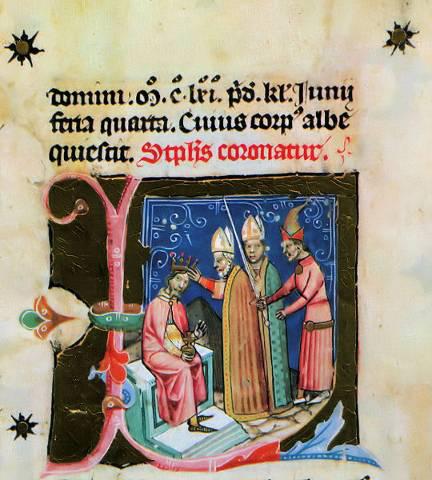 domini. Mͦ. Cͦ. lxiͦ. pͥdͦ. kl'. Junij
feria quarta. Cuius corpꝰ albe
quiescit. Stephͣs coronatur.